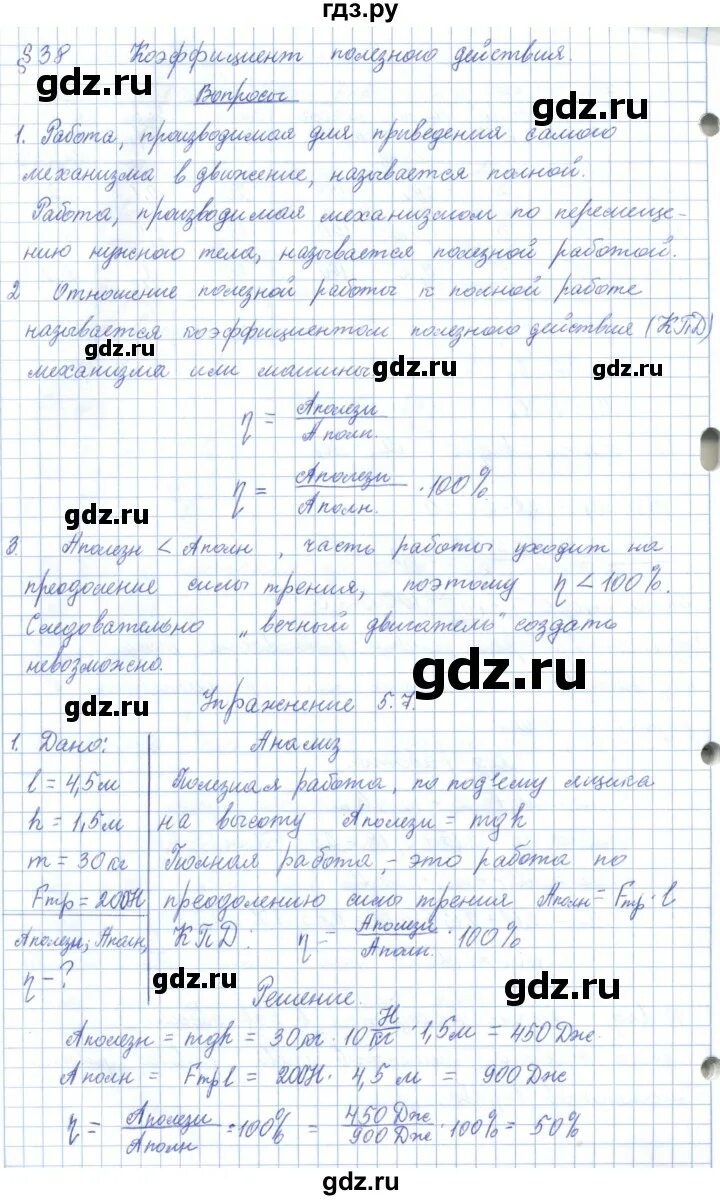 гдз.ру
§ 38 Коэффициент полезного действия.
gdz.ru gdz.ru
Вопросы
1. Работа, производимая для приведения самого
механизма в движение, называется полной.
Работа, производимая механизмом по перемеще-
нию нужного тела, называется полезной работой.
2 Отношение полезной работы к полной работе
называется коэффициентом полезного действия (КПД)
gdz.ru gdz.ru gdz.ru
механизма или машины
η = Аполезн / Аполн.
η = Аполезн / Аполн. · 100%
gdz.ru
3. Аполезн < Аполн, часть работы уходит на
преодоление силы трения, поэтому η < 100%.
Следовательно „вечный двигатель" создать
невозможно.
gdz.ru
gdz.ru
Упражнение 5.7.
1. Дано: Анализ
l = 4,5м Полезная работа, по подъему ящика
h = 1,5м на высоту Аполезн = mgh
m = 30кг Полная работа, - это работа по
Fтр = 200Н преодолению силы трения Аполн = Fтр · l
Аполезн; Аполн, КПД: η = Аполезн / Аполн. · 100%
η - ?
gdz.ru gdz.ru
Решение.
Аполезн = mgh = 30кг · 10 Н/кг · 1,5м = 450 Дж.
Аполн = Fтр l = 200Н · 4,5 м = 900 Дж
η = Аполезн / Аполн · 100% = 450 Дж / 900 Дж · 100% = 50%
gdz.ru